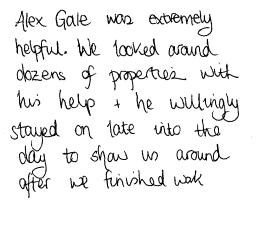 Alex Gale was extremely
helpful. We looked around
dozens of properties with
his help + he willingly
stayed on late into the
day to show us around
after we finished work